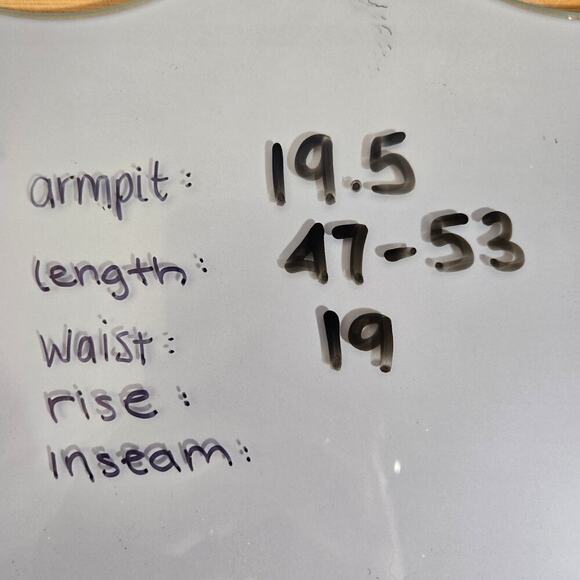 armpit: 19.5
length: 47-53
waist: 19
rise:
inseam: